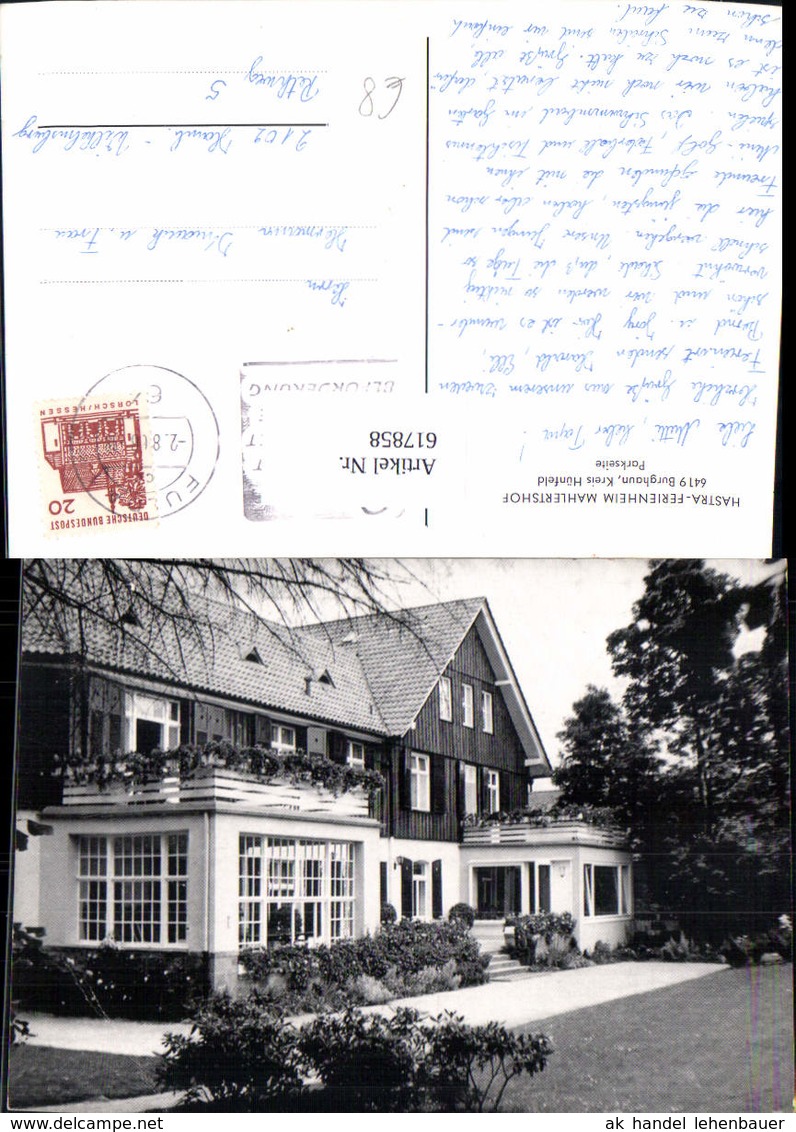 HASTRA-FERIENHEIM MAHLERTSHOF
6419 Burghaun, Kreis Hünfeld
Parkseite
Artikel Nr.
617858
Liebe Mutti, lieber Papa!
Herzliche Grüße aus unserem zweiten
Ferienort senden Harald, Elli,
Bernd u. Jörg. Hier ist es wunder-
schön und wir werden so richtig
verwöhnt. Schade, daß die Tage so
schnell vergehen. Unsere Jungen sind
hier die jüngsten, haben aber schon
Freunde gefunden die mit ihnen
Mini-Golf, Federball und Tischtennis
spielen. Das Schwimmbad im Garten
haben wir noch nicht benutzt, dafür
ist es noch zu kalt. Grüße all,
denn zum Schreiben sind wir einfach
schon zu faul.
BEFÖRDERUNG
FUL
-2.8.6
DEUTSCHE BUNDESPOST
20
LORSCH/HESSEN
Herrn
Hermann u. Frau
2102 Hamb.-Wilhelmsburg
5
Rethweg
€8
ak handel lehenbauer